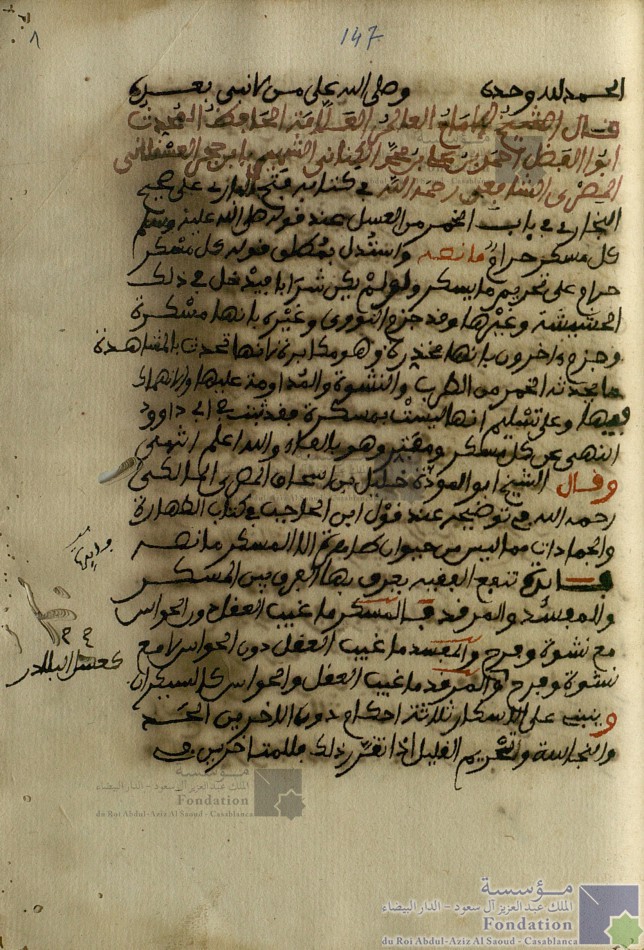 147
٨
الحمد لله وحده وصلى الله على من لا نبي بعده
قال الشيخ الامام العالم العلامة الحافظ المحدث
ابوا الفضل احمد بن علي بن حجر الكناني الشهير بابن حجر العسقلاني
المصري الشافعي رحمه الله في كتابه فتح الباري على صحيح
البخاري في باب الخمر من العسل عند قوله صلى الله عليه وسلم
كل مسكر حرام ما نصه واستدل بمطلق قوله كل مسكر
حرام على تحريم ما يسكر ولو لم يكن شرابا فيدخل في ذلك
الحشيشة وغيرها وقد جزم النووي وغيره بانها مسكرة
وجزم ءاخرون بانها مخدرة وهو مكابرة لانها تحدث بالمشاهدة
ما يحدثه الخمر من الطرب والنشوة والمداومة عليها والانهماك
فيها وعلى تسليم انها ليست بمسكرة فقد ثبت في ابي داوود
النهي عن كل مسكر ومفتر وهو بالفاء والله اعلم انتهى
وقال الشيخ ابو المودة خليل بن اسحاق المصري المالكي
رحمه الله في توضيحه عند قول ابن الحاجب في كتاب الطهارة
والجمادات مما ليس من حيوان طاهرة الا المسكر ما نصه
فائدة تنفع الفقيه يعرف بها الفرق بين المسكر
والمفسد والمرقد فالمسكر ما غيب العقل دون الحواس
مع نشوة وفرح والمفسد ما غيب العقل دون الحواس لا مع
نشوة وفرح والمرقد ما غيب العقل والحواس كالسيكران
وينبني على الاسكار ثلاثة احكام دون الاخرين الحد
والنجاسة وتحريم القليل اذا تقرر ذلك فللمتاخرين في
كعسل البلادر
مؤسسة
الملك عبد العزيز آل سعود - الدار البيضاء
Fondation
du Roi Abdul-Aziz Al Saoud - Casablanca
مؤسسة
الملك عبد العزيز آل سعود - الدار البيضاء
Fondation
du Roi Abdul-Aziz Al Saoud - Casablanca